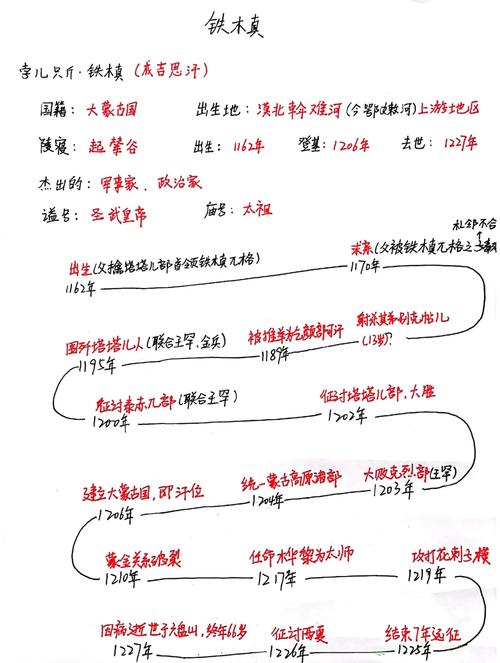 铁木真
孛儿只斤·铁木真(成吉思汗)
国籍: 大蒙古国 出生地: 漠北斡难河(今鄂嫩河)上游地区
陵寝: 起辇谷 出生: 1162年 登基: 1206年 去世: 1227年
杰出的: 军事家、政治家
谥号: 圣武皇帝 庙号: 太祖
札邻不合
出生(父擒塔塔儿部首领铁木真兀格) 求亲(父被铁木真兀格之子
1162年 1170年
围歼塔塔儿人(联合王罕,金兵) 被推举为乞颜部可汗 射杀其弟别克帖儿
1195年 1189年 (13岁)?
征讨泰赤兀部(联合王罕) 征讨塔塔儿部,大胜
1200年 1202年
建立大蒙古国,即汗位 统一蒙古高原诸部 大败克烈部(王罕)
1206年 1204年 1203年
蒙金关系破裂 任命木华黎为太师 攻打花剌子模
1210年 1217年 1219年
因病逝世于六盘山,终年66岁 征讨西夏 结束7年远征
1227年 1226年 1225年